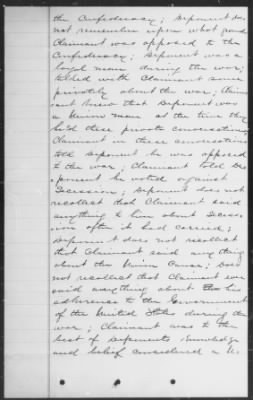 the Confederacy; deponent does
not remember upon what ground
Claimant was opposed to the
Confederacy; deponent was a
loyal man during the war;
talked with Claimant some
privately about the war; Claim-
ant knew that deponent was
a Union man at the time they
held these private conversations,
Claimant in these conversations
told deponent he was opposed
to the war; Claimant told De-
ponent he voted against
Secession; deponent does not
recollect that Claimant said
anything to him about Secess-
ion after it had carried;
deponent does not recollect
that Claimant said any thing
about the Union Cause; does
not recollect that Claimant ever
said anything about his
adherence to the Government
of the United States during the
war; Claimant was to the
best of deponents knowledge
and belief considered a U-